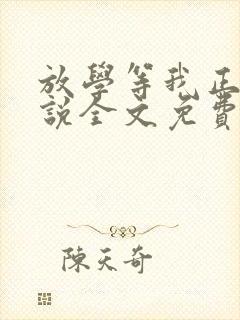 放學等我正
說全文免費
陳天奇